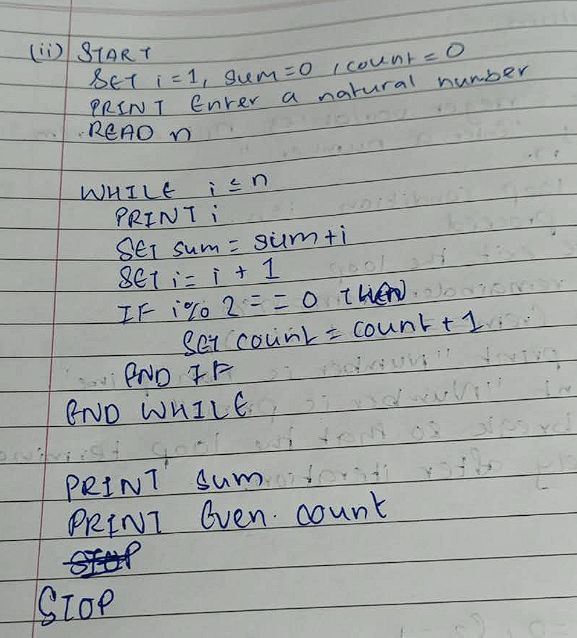 (ii) START
SET i = 1, sum = 0, count = 0
PRINT Enter a natural number
READ n
WHILE i ≤ n
PRINT i
SET sum = sum + i
SET i = i + 1
IF i % 2 == 0 THEN
SET count = count + 1
END IF
END WHILE
PRINT sum
PRINT Even. count
STOP
STOP